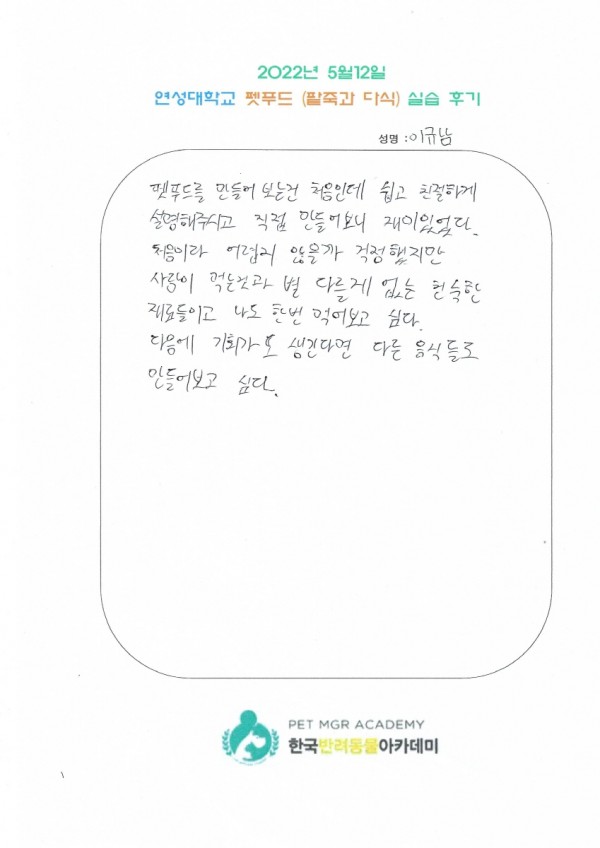 2022년 5월12일
연성대학교 펫푸드 (팥죽과 다식) 실습 후기
성명 : 이규남
펫푸드를 만들어 보는건 처음인데 쉽고 친절하게
설명해주시고 직접 만들어보니 재미있었다.
처음이라 어렵지 않을까 걱정했지만
사람이 먹는것과 별 다를게 없는 친숙한
재료들이고 나도 한번 먹어보고 싶다.
다음에 기회가 또 생긴다면 다른 음식들로
만들어보고 싶다.
PET MGR ACADEMY
한국반려동물아카데미